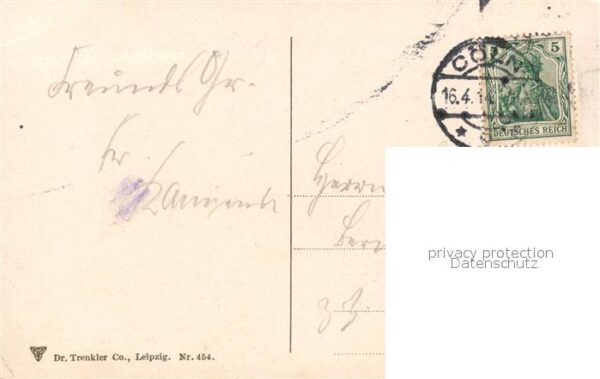 Freundl. Gr.
Fr.
CÖLN
16.4.14
5
DEUTSCHES REICH
Herrn
privacy protection
Datenschutz
z. Z.
Dr. Trenkler Co., Leipzig. Nr. 454.